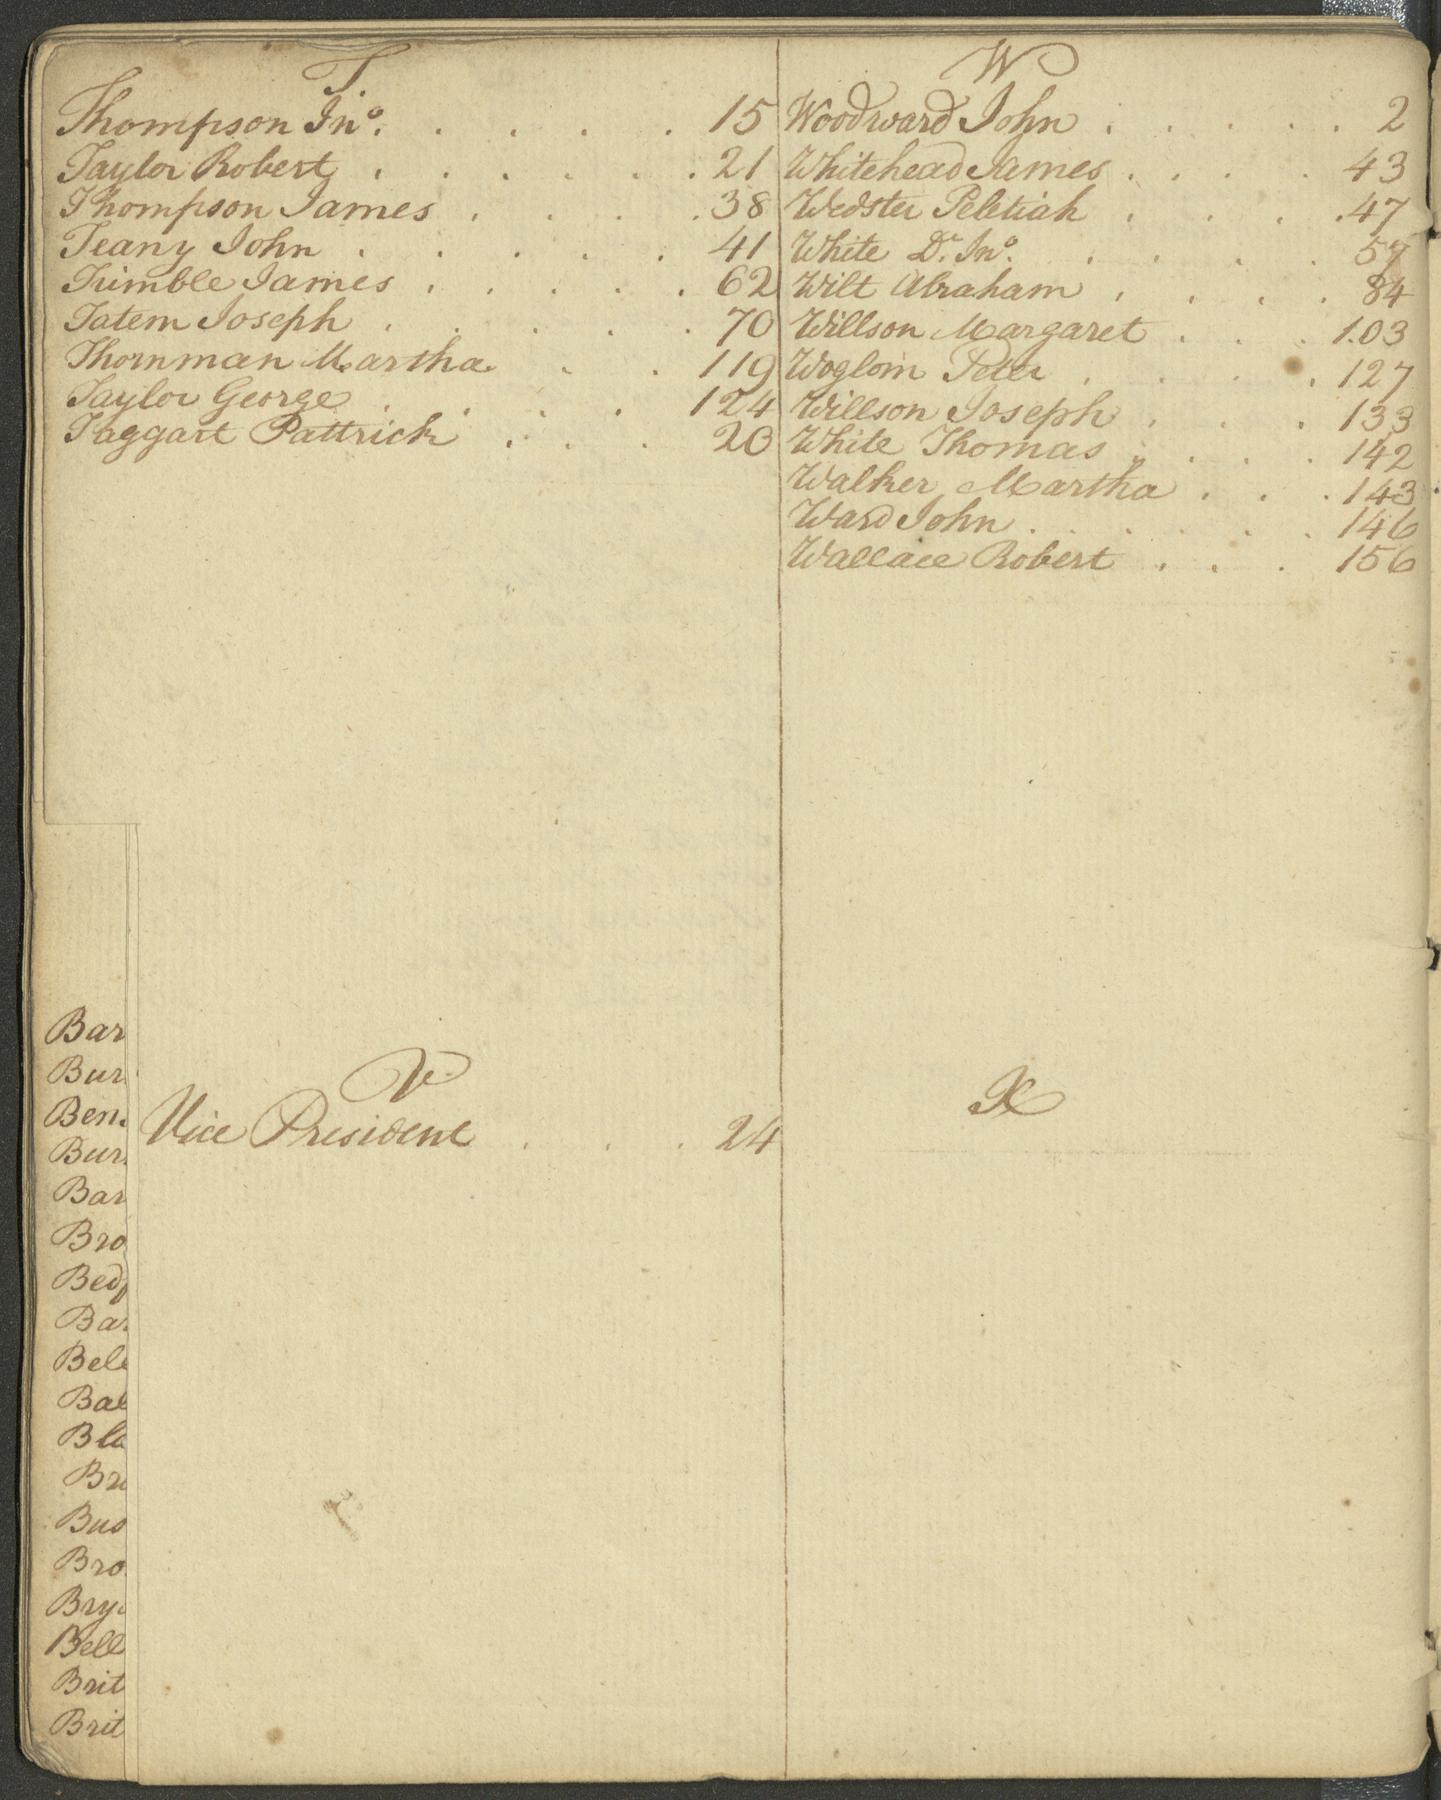 T.
Thompson Jno. . . . . . 15
Taylor Robert . . . . . . 21
Thompson James . . . . 38
Teany John . . . . . 41
Trimble James . . . . . 62
Tatem Joseph . . . . . 70
Thornman Martha . . 119
Taylor George . . . . 124
Taggart Pattrick . . . 20
V
Vice President . . . 24
W
Woodward John . . . . . 2
Whitehead James . . . . 43
Webster Peletiah . . . . 47
White Dr. Jno. . . . . 57
Wilt Abraham . . . . 84
Willson Margaret . . . 103
Woglom Peter . . . . 127
Willson Joseph . . . 133
White Thomas . . . . 142
Walker Martha . . . 143
Ward John . . . . . 146
Wallace Robert . . . 156
X
Bar
Bur
Ben
Bur
Bar
Bro
Bed
Ba
Bel
Bal
Bla
Br
Bus
Bro
Bry
Bell
Brit
Brit